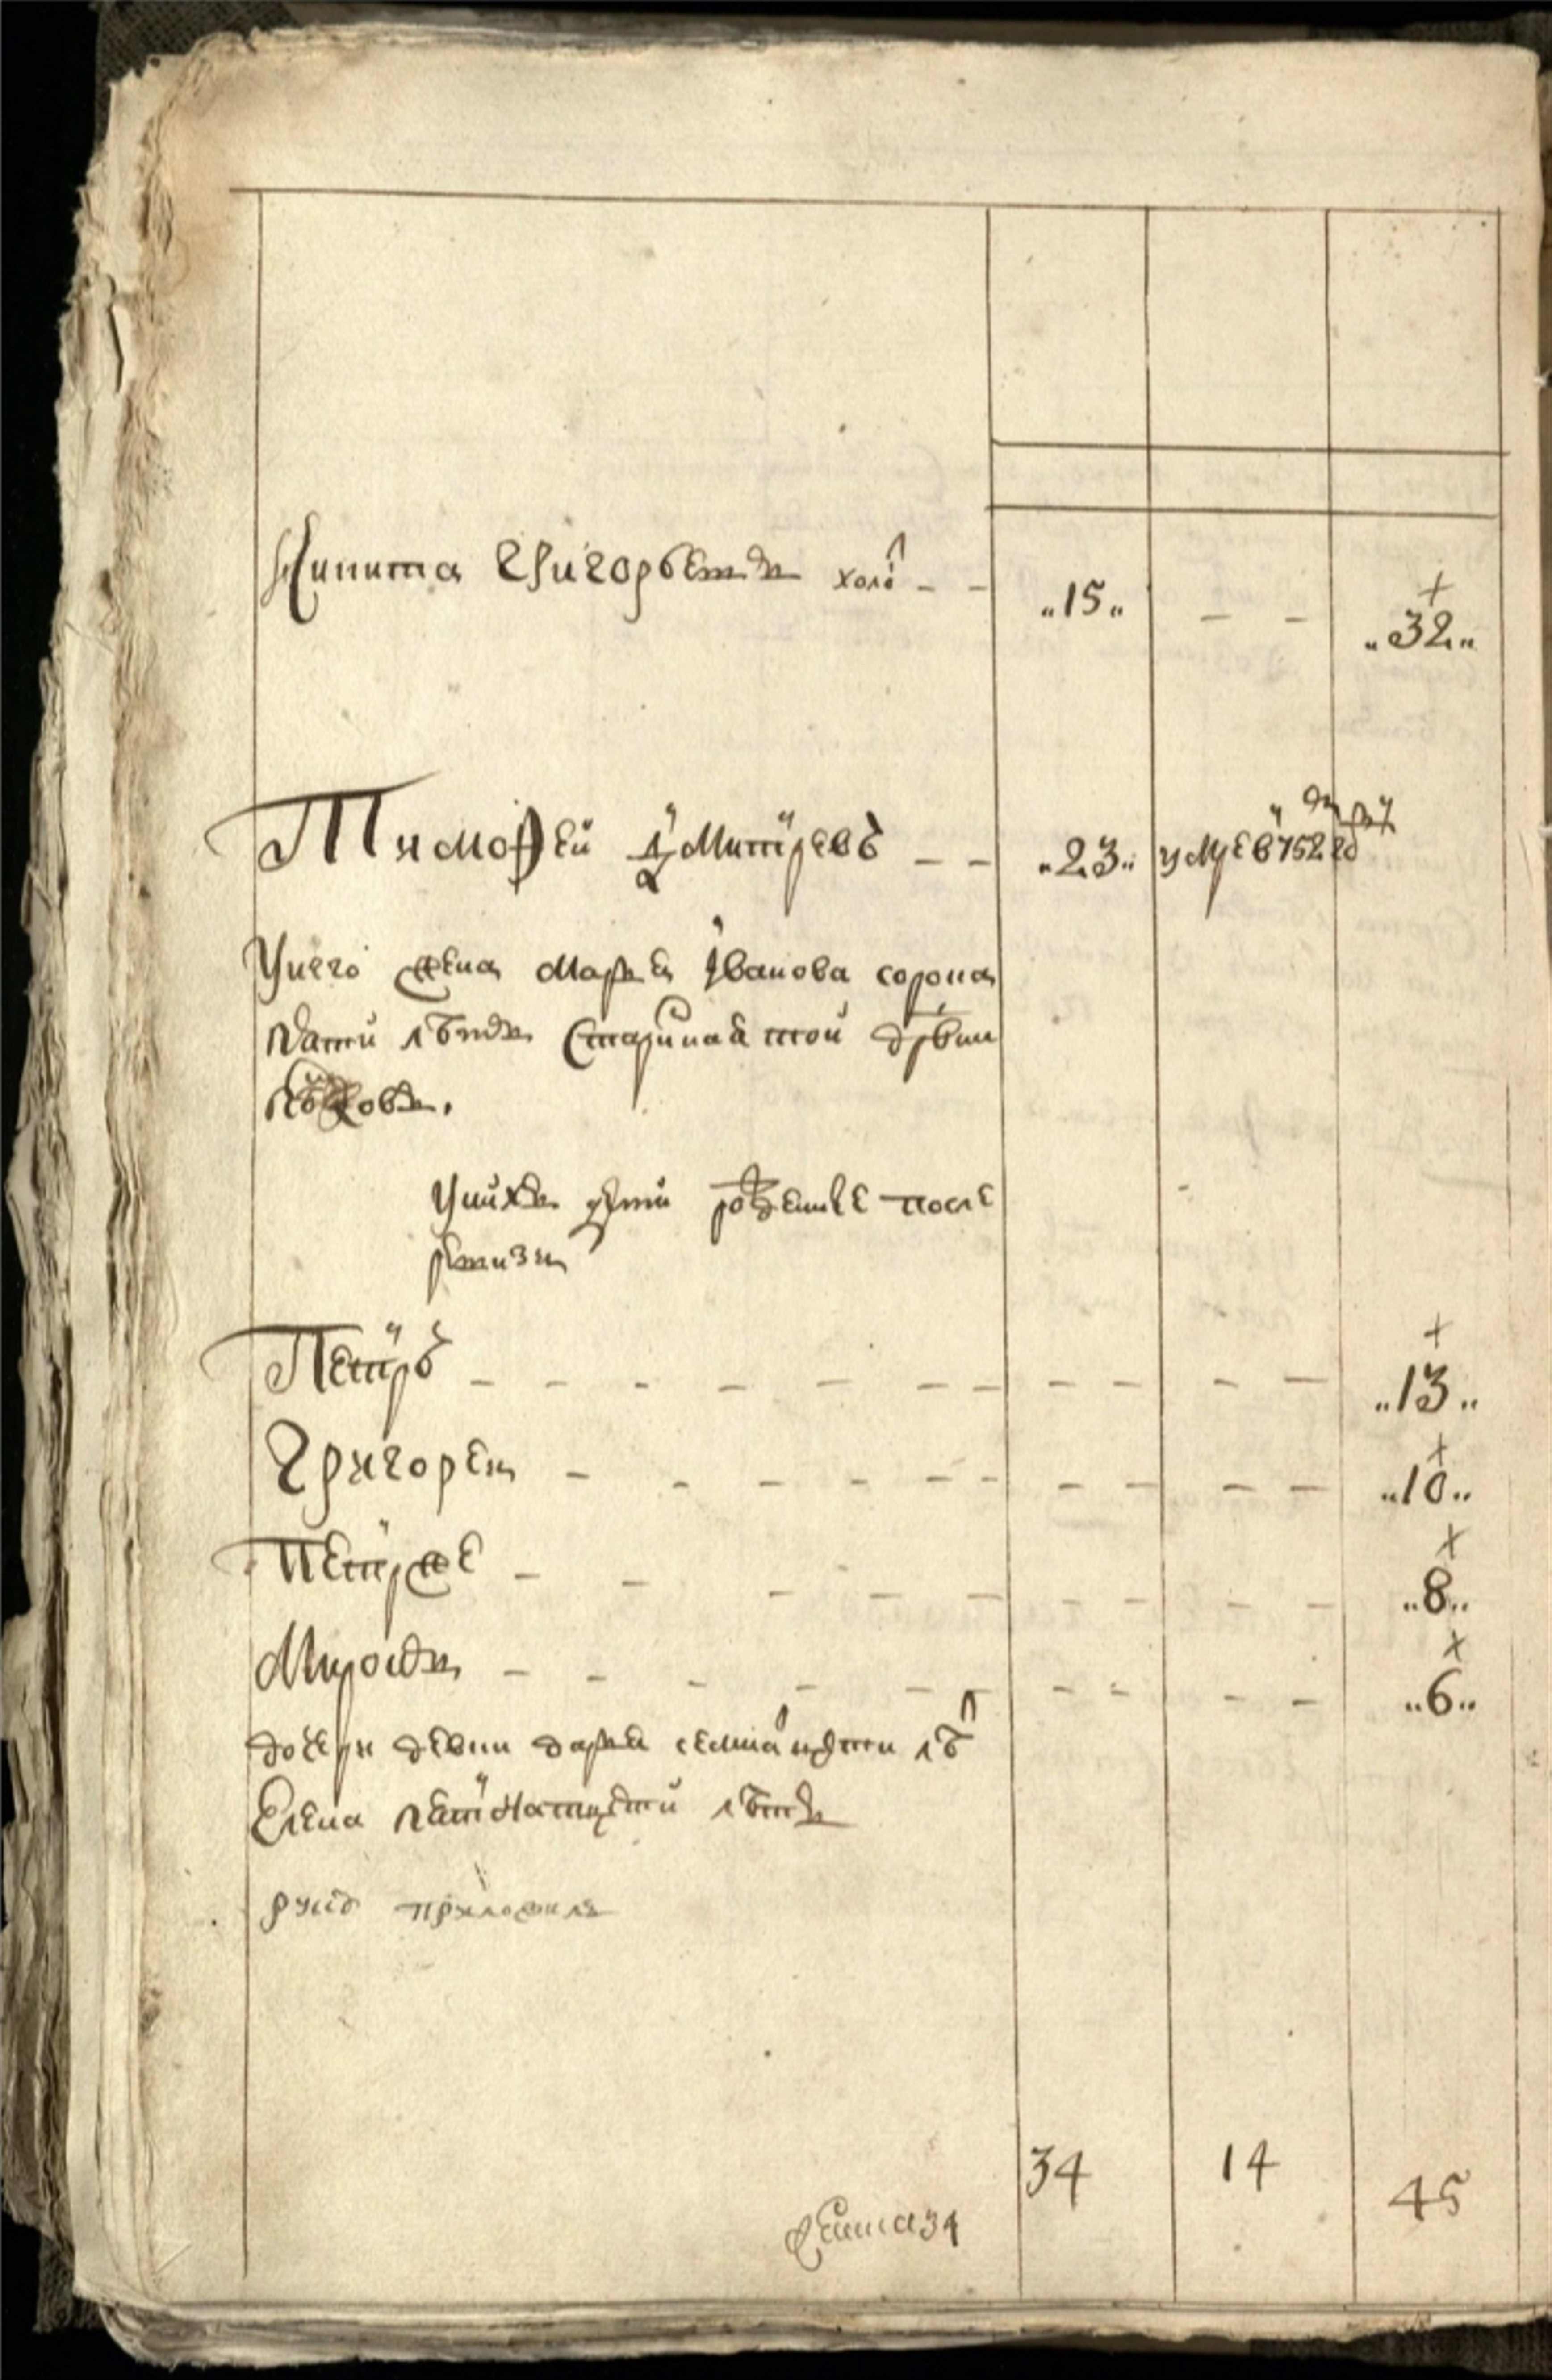 Никита Григорьевъ холо – – „15„ – – + „32„
Тимофей Дмитревъ – – „23„ умре в 1752 год
У него жена Марья Иванова сорока
пяти летъ старинная той древни
У нихъ дети рожденые после
ревизии
Петръ – – – – – – – – – – – + „13„
Григорей – – – – – – – – – – + „10„
Петръ же – – – – – – – – – – + „8„
Миронъ – – – – – – – – – – + „6„
дочери девки Дарья семнатцати лет
Елена пятнатцати летъ
руку приложилъ
34 14 45
женска 34